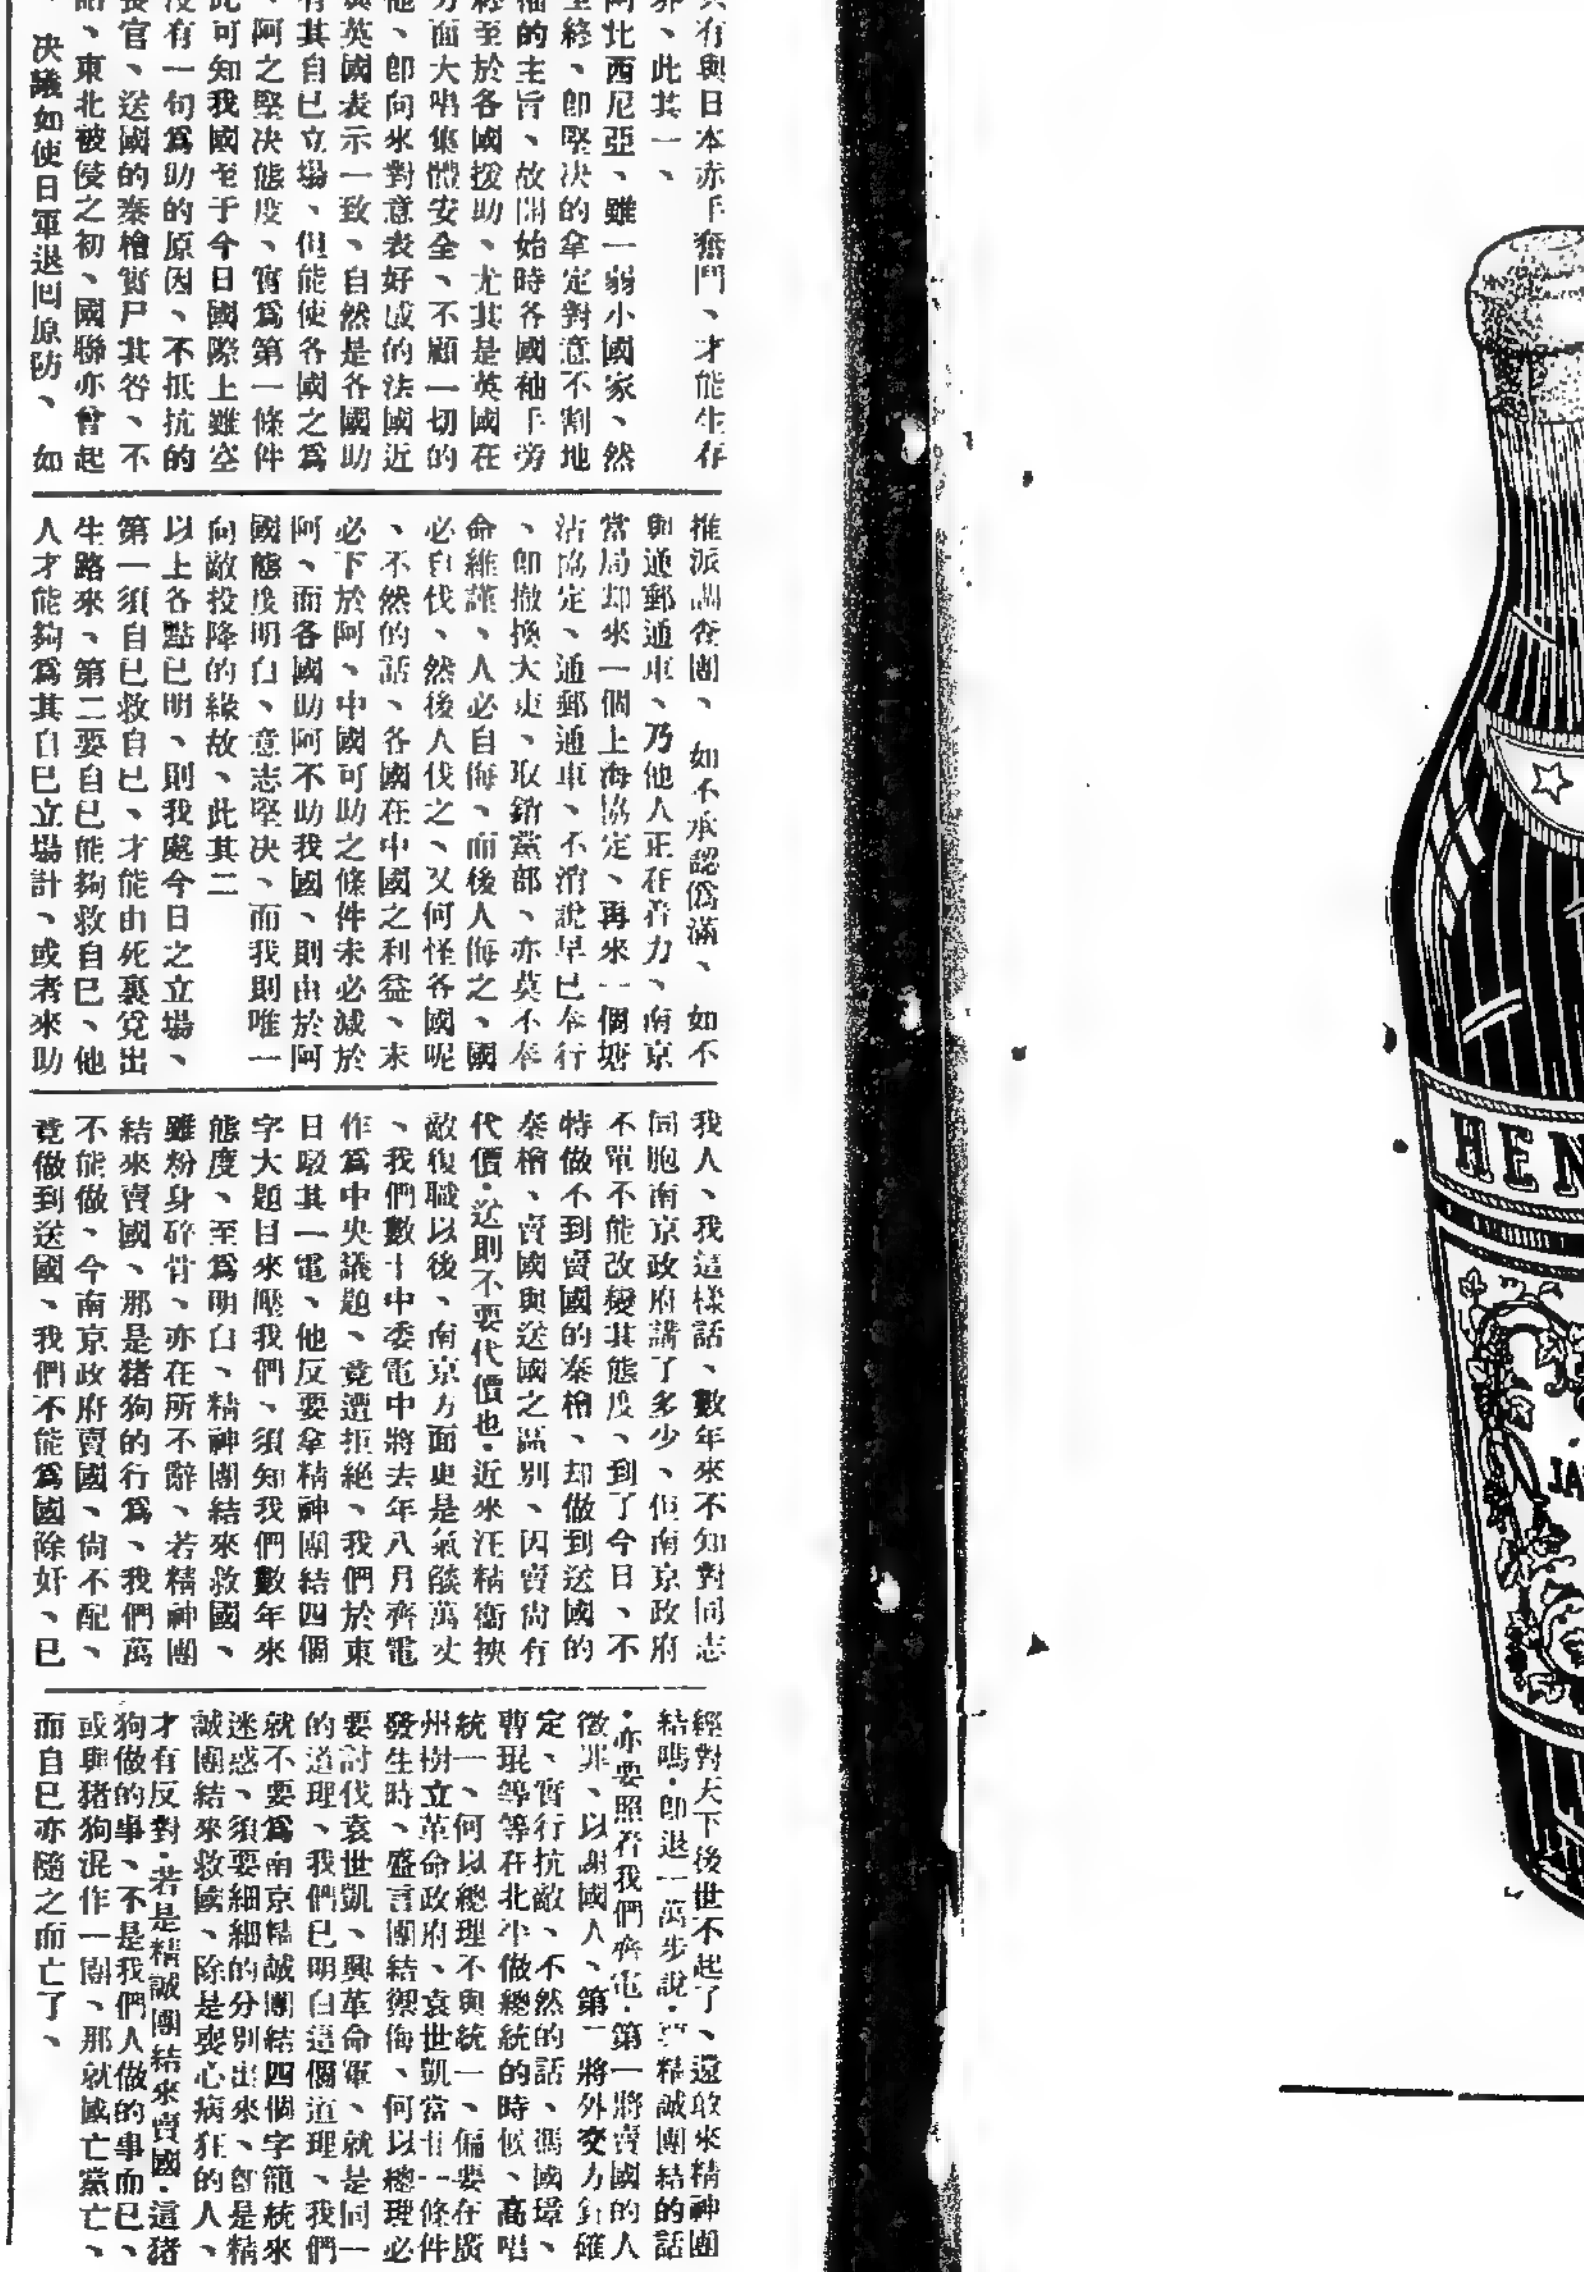 只有與日本赤手奮鬥、才能生存
界、此其一、
阿比西尼亞、雖一弱小國家、然
至終、卽堅决的拿定對意不割地
福的主旨、故開始時各國袖手旁
終至於各國援助、尤其是英國在
方面大唱集體安全、不顧一切的
他、卽向來對意表好感的法國近
與英國表示一致、自然是各國助
有其自已立場、但能使各國之爲
、阿之堅决態度、實爲第一條件
此可知我國至于今日國際上雖空
沒有一句爲助的原因、不抵抗的
長官、送國的秦檜實尸其咎、不
、東北被侵之初、國聯亦曾起
、决議如使日軍退囘原防、如
推派調查團、如不承認僞滿、如不
與通郵通車、乃他人正在着力、南京
當局却來一個上海協定、再來一個塘
沽協定、通郵通車、不消說早已奉行
、卽撤換大吏、取銷黨部、亦莫不奉
命維謹、人必自侮、而後人侮之、國
必自伐、然後人伐之、又何怪各國呢
、不然的話、各國在中國之利益、未
必下於阿、中國可助之條件未必減於
阿、而各國助阿不助我國、則由於阿
國態度明白、意志堅决、而我則唯一
向敵投降的緣故、此其二
以上各點已明、則我處今日之立場、
第一須自已救自已、才能由死裏覓出
生路來、第二要自已能夠救自已、他
人才能夠爲其自已立場計、或者來助
我人、我這樣話、數年來不知對同志
同胞南京政府講了多少、但南京政府
不單不能改變其態度、到了今日、不
特做不到賣國的秦檜、却做到送國的
秦檜、賣國與送國之區別、因賣尙有
代價・送則不要代價也・近來汪精衞挾
敵復職以後、南京方面更是氣燄萬丈
、我們數十中委電中將去年八月齊電
作爲中央議題、竟遭拒絕、我們於東
日駁其一電、他反要拿精神團結四個
字大題目來壓我們、須知我們數年來
態度、至爲明白、精神團結來救國、
雖粉身碎骨、亦在所不辭、若精神團
結來賣國、那是猪狗的行爲、我們萬
不能做、今南京政府賣國、尙不配、
竟做到送國、我們不能爲國除奸、已
經對天下後世不起了、還敢來精神團
結嗎・卽退一萬步說・精誠團結的話
・亦要照着我們齊電・第一將賣國的人
徵罪、以謝國人、第二將外交方針確
定、實行抗敵、不然的話、馮國璋、
曹琨等等在北平做總統的時候、高唱
統一、何以總理不與統一、偏要在廣
州樹立革命政府、袁世凱當廿一條件
發生時、盛言團結禦侮、何以總理必
要討伐袁世凱、興革命軍、就是同一
的道理、我們已明白這個道理、我們
就不要爲南京精誠團結四個字籠統來
迷惑、須要細細的分別出來、曾是精
誠團結來救國、除是喪心病狂的人、
才有反對・若是精誠團結來賣國・這猪
狗做的事、不是我們人做的事而已、
或與猪狗混作一團、那就國亡黨亡、
而自已亦隨之而亡了、
HEN
JA